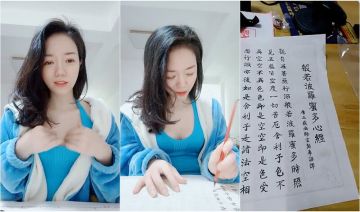 般若波羅蜜多心經
唐三藏法師玄奘奉詔譯
觀自在菩薩行深般若波羅蜜多時照
見五蘊皆空度一切苦厄舍利子色不
異空空不異色色即是空空即是色受
想行識亦復如是舍利子是諸法空相